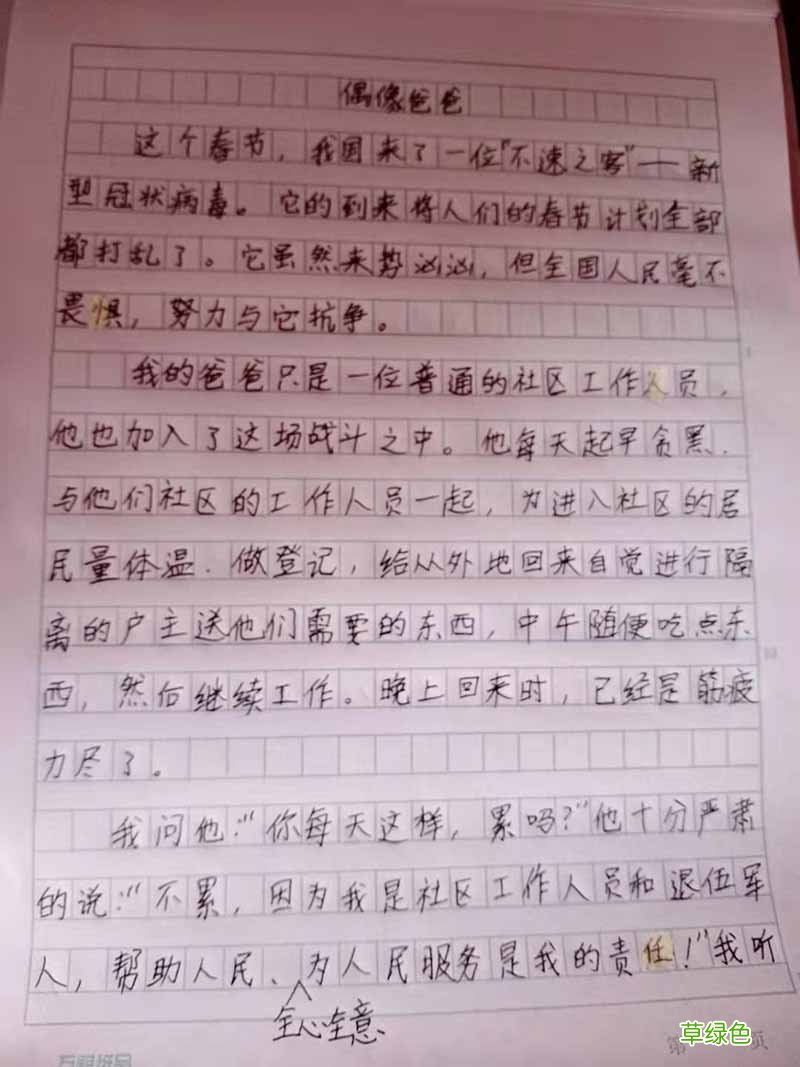 偶像爸爸
这个春节，我国来了一位“不速之客”——新
型冠状病毒。它的到来将人们的春节计划全部
都打乱了。它虽然来势汹汹，但全国人民毫不
畏惧，努力与它抗争。
我的爸爸只是一位普通的社区工作人员，
他也加入了这场战斗之中。他每天起早贪黑，
与他们社区的工作人员一起，为进入社区的居
民量体温、做登记，给从外地回来自觉进行隔
离的户主送他们需要的东西，中午随便吃点东
西，然后继续工作。晚上回来时，已经是筋疲
力尽了。
我问他：“你每天这样，累吗？”他十分严肃
的说：“不累，因为我是社区工作人员和退伍军
人，帮助人民、为人民服务是我的责任！”我听
全心全意
第 页
草绿色